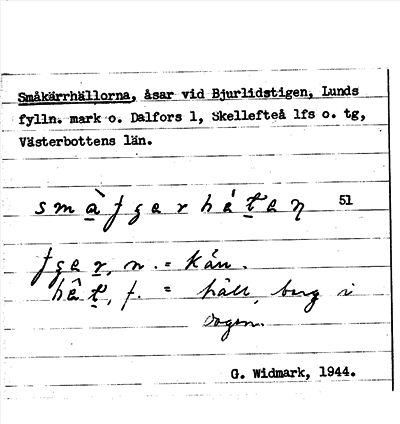 Småkärrhällorna, åsar vid Bjurlidstigen, Lunds
fylln. mark o. Dalfors 1, Skellefteå lfs o. tg,
Västerbottens län.
51
n. = kärr.
f. = häll, berg i
dagen.
G. Widmark, 1944.